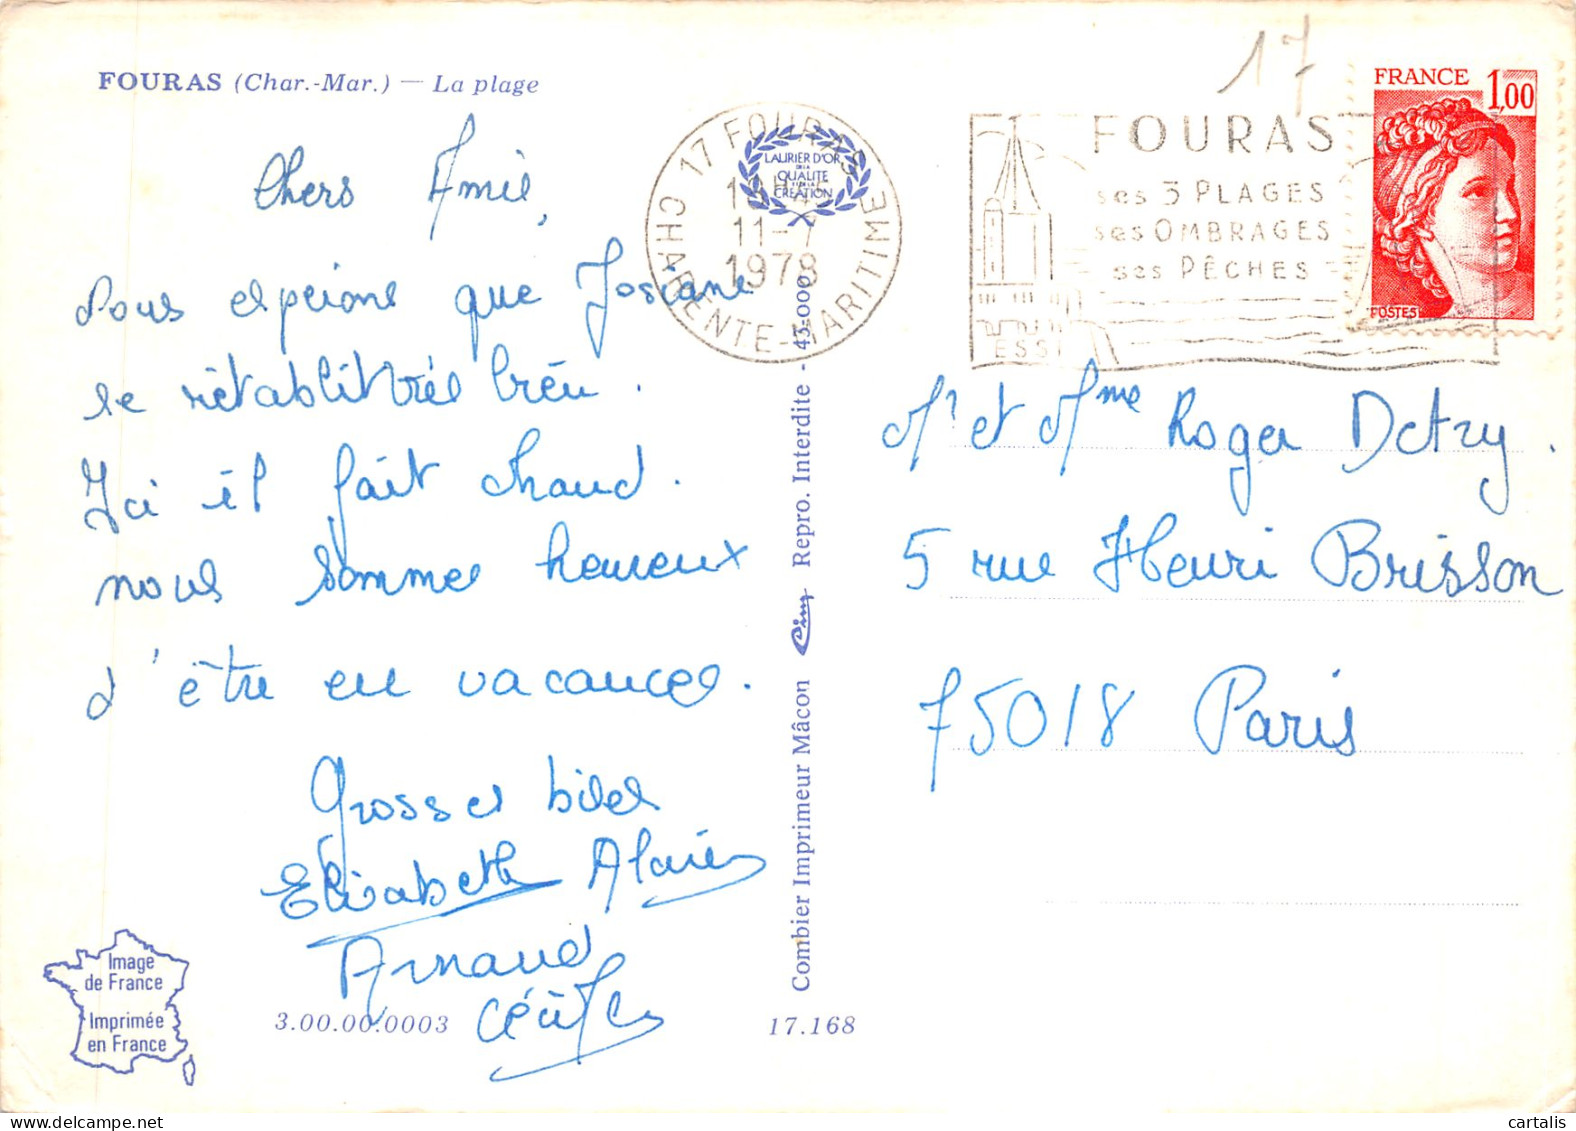 FOURAS (Char.-Mar.) — La plage
Chers Amis,
Nous espérons que Josiane
se rétablit très bien.
Ici il fait chaud.
nous sommes heureux
d'être en vacances.
Grosses bises
Elisabeth Alain
Arnaud
Cécile
Image
de France
Imprimée
en France
3.00.00.0003
17.168
Combier Imprimeur Mâcon Cim Repro. Interdite - 45.000
17 FOURAS
11-7
1978
CHARENTE-MARITIME
LAURIER D'OR
DE LA
QUALITE
CREATION
17
FOURAS
ses 3 PLAGES
ses OMBRAGES
ses PÊCHES
ESSI
FRANCE 1,00
POSTES
Mr et Mme Roger Detry.
5 rue Henri Brisson
75018 Paris
cartalis